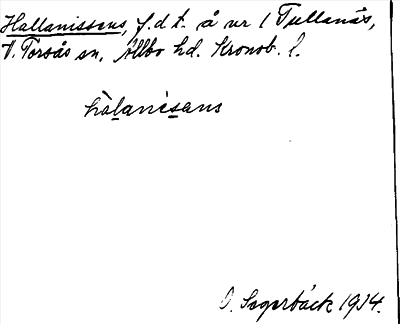 Hallanissens, f.d t. å nr 1 Tullanäs,
V. Torsås sn, Allbo hd. Kronob. l.
hàlanísans
O. Sagerbäck 1934.